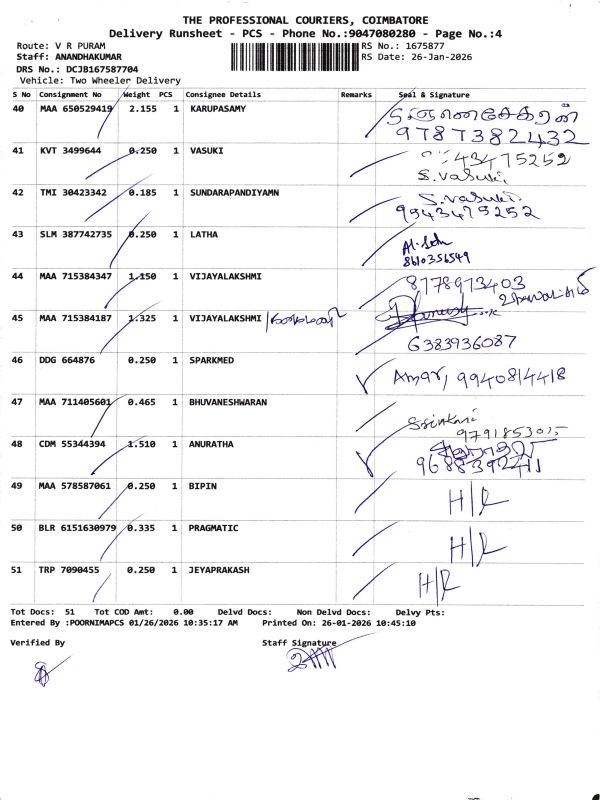 THE PROFESSIONAL COURIERS, COIMBATORE
Delivery Runsheet - PCS - Phone No.:9047080280 - Page No.:4
Route: V R PURAM
RS No.: 1675877
Staff: ANANDHAKUMAR
RS Date: 26-Jan-2026
DRS No.: DCJB167587704
Vehicle: Two Wheeler Delivery
S No Consignment No Weight PCS Consignee Details Remarks Seal & Signature
40 MAA 650529419 2.155 1 KARUPASAMY
9787382432
41 KVT 3499644 0.250 1 VASUKI 43475252
S.Vasuki
42 TMI 30423342 0.185 1 SUNDARAPANDIYAMN S.Vasuki
9943475252
43 SLM 387742735 0.250 1 LATHA
8610356549
44 MAA 715384347 1.150 1 VIJAYALAKSHMI 8778973403
45 MAA 715384187 1.325 1 VIJAYALAKSHMI
6383936087
46 DDG 664876 0.250 1 SPARKMED Amar, 9940814418
47 MAA 711405601 0.465 1 BHUVANESHWARAN
9791853015
48 CDM 55344394 1.510 1 ANURATHA
9688392411
49 MAA 578587061 0.250 1 BIPIN H/R
50 BLR 6151630979 0.335 1 PRAGMATIC H/R
51 TRP 7090455 0.250 1 JEYAPRAKASH H/R
Tot Docs: 51 Tot COD Amt: 0.00 Delvd Docs: Non Delvd Docs: Delvy Pts:
Entered By :POORNIMAPCS 01/26/2026 10:35:17 AM Printed On: 26-01-2026 10:45:10
Verified By Staff Signature